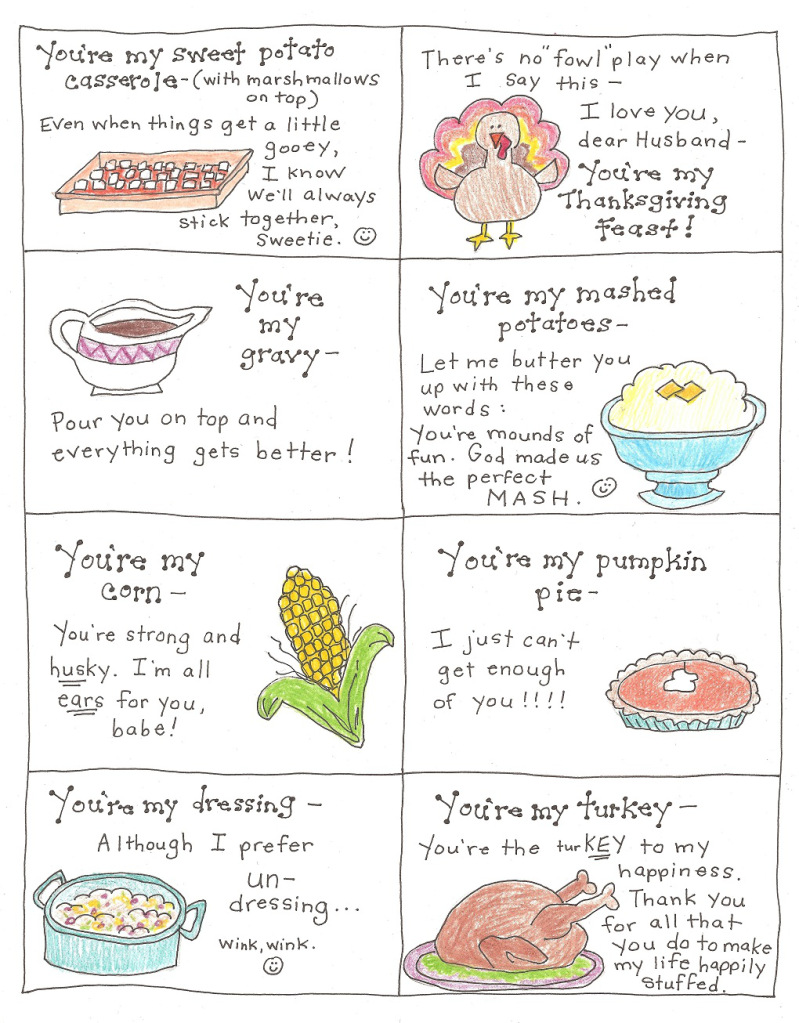 You're my sweet potato
casserole-(with marshmallows
on top)
Even when things get a little
gooey,
I know
we'll always
stick together,
Sweetie.
There's no "fowl" play when
I say this -
I love you,
dear Husband -
You're my
Thanksgiving
feast!
You're
my
gravy -
Pour you on top and
everything gets better!
You're my mashed
potatoes -
Let me butter you
up with these
words:
You're mounds of
fun. God made us
the perfect
MASH.
You're my
corn -
You're strong and
husky. I'm all
ears for you,
babe!
You're my pumpkin
pie -
I just can't
get enough
of you!!!!
You're my dressing -
Although I prefer
un-
dressing...
wink, wink.
You're my turkey -
You're the turKEY to my
happiness.
Thank you
for all that
you do to make
my life happily
stuffed.